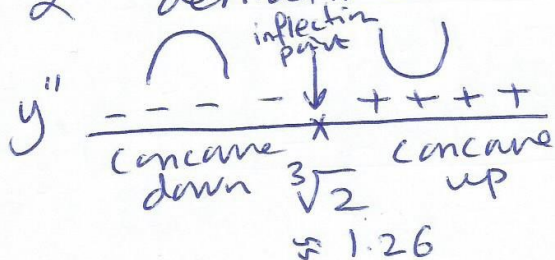 inflection
point
y" - - - - + + + +
concave down
∛2
concave up
≈ 1.26